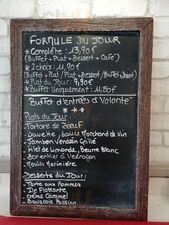 FORMULE DU JOUR
* Complète : 13,90 €
(Buffet + Plat + Dessert + Café)
* 2 choix : 11,90 €
(Buffet + Plat / Plat + Dessert / Buffet + Dessert)
* Plat du Jour 9,90 €
* Buffet Uniquement : 11,50 €
Buffet d'entrées à Volonté
***
Plats du Jour
- Tartare de Boeuf
- Bavette, Sauce Marchand de Vin
- Jambon Vendéen Grillé
- Filet de Limande, Beurre Blanc
- Moules Marinière
Desserts du Jour :
- Tarte aux Pommes
- Île Flottante
- Crème Caramel
- Passion